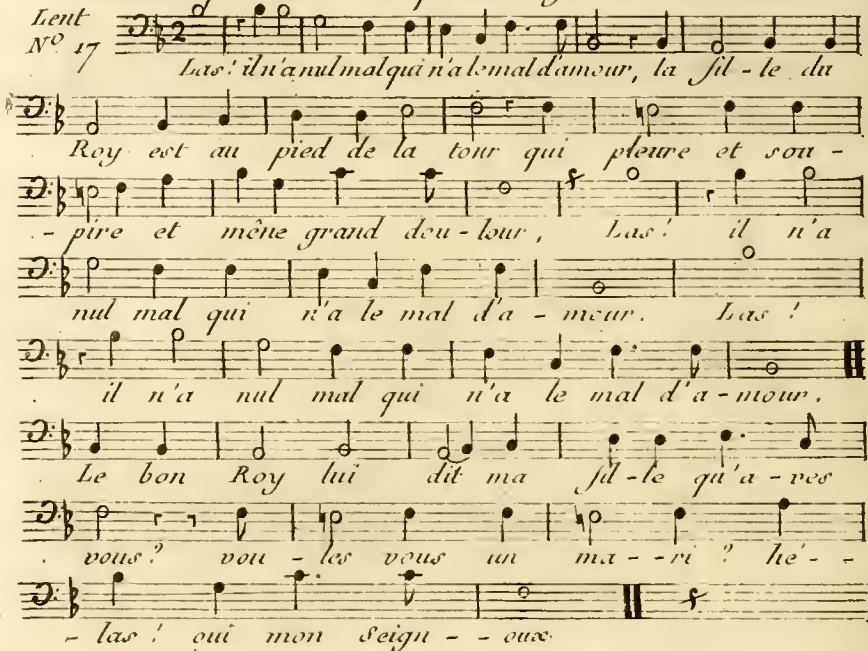 Lent
Nº 17
2
Las! il n'a nul mal qui n'a le mal d'amour, la fil-le du
Roy est au pied de la tour qui pleure et sou-
-pire et mêne grand dou-leur, Las! il n'a
nul mal qui n'a le mal d'a-mour. Las!
il n'a nul mal qui n'a le mal d'a-mour.
Le bon Roy lui dit ma fil-le qu'a-ves
vous? vou-les vous un ma--ri? hé--
-las! oui mon Seign--oux